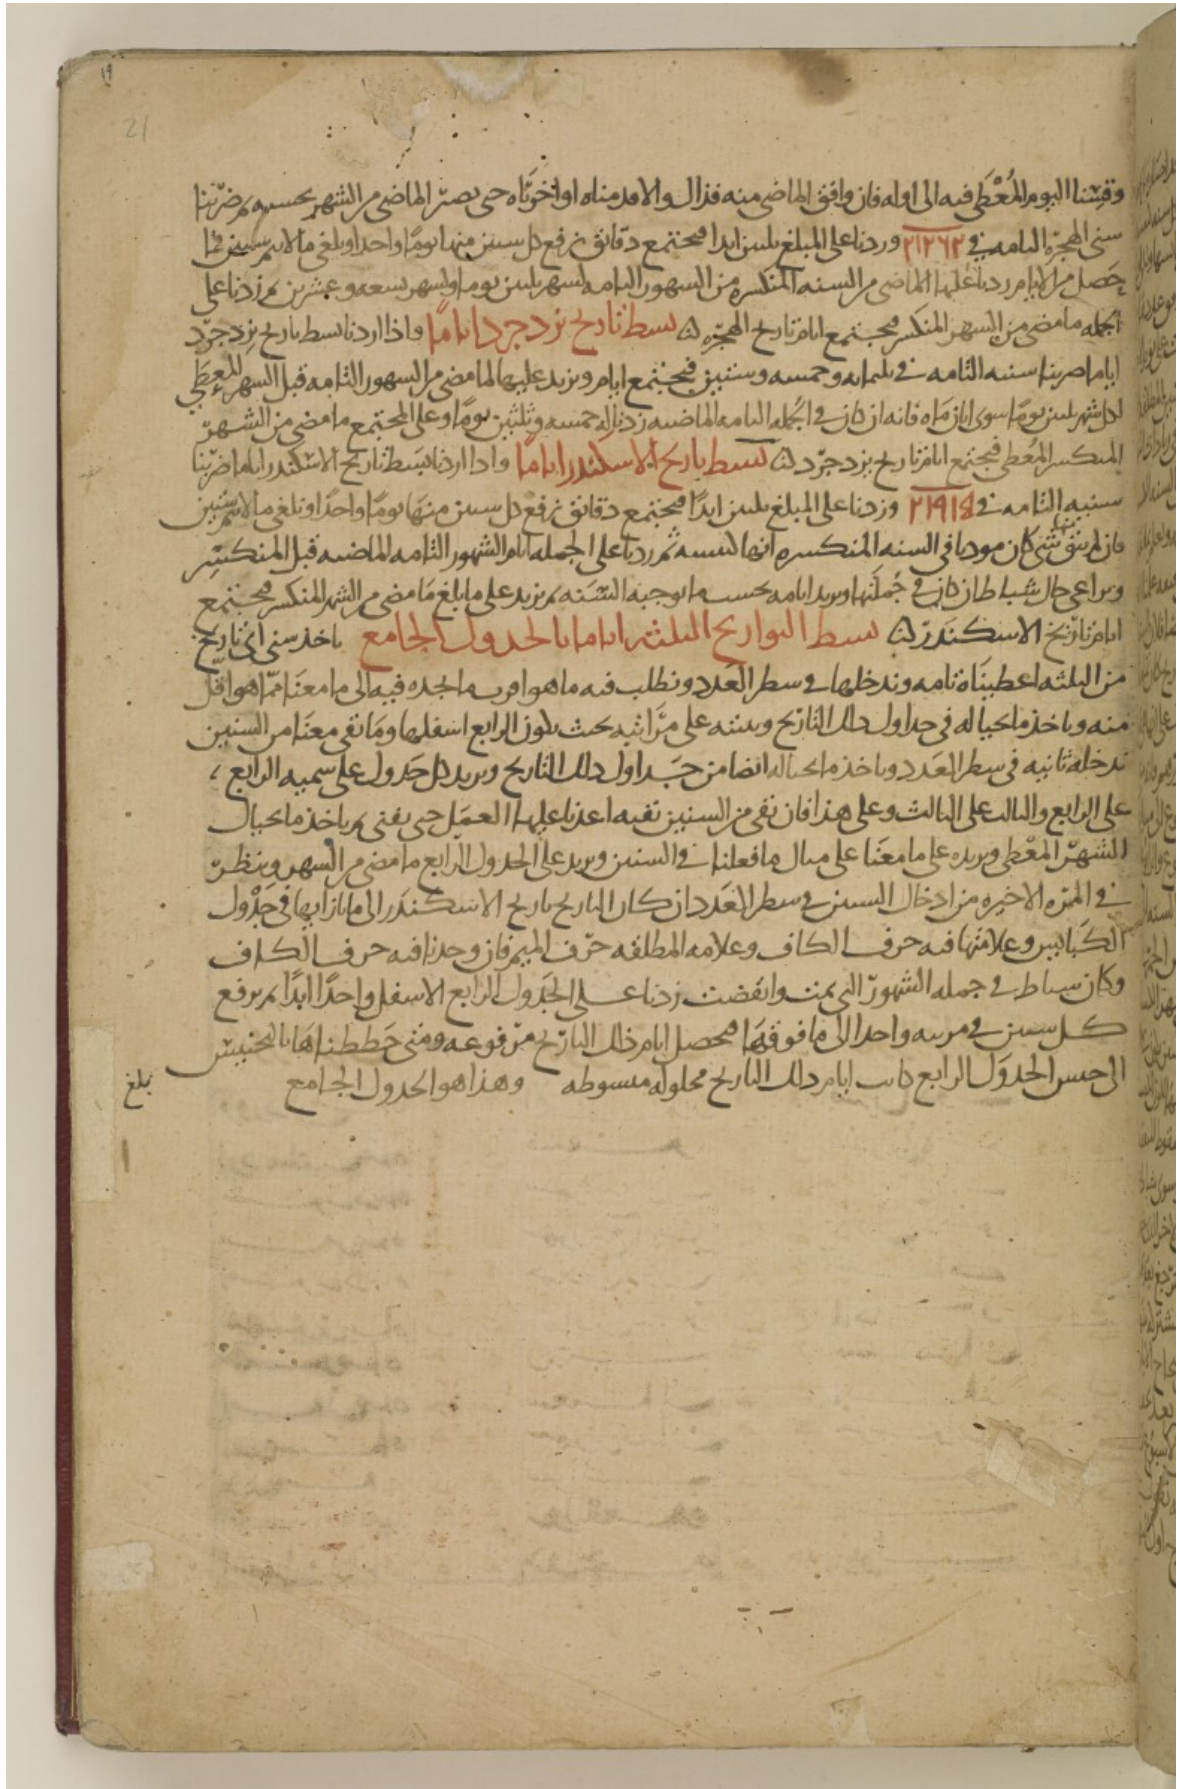 ١٩
21
وقسنا اليوم المُعْطَى فيه الى اوله فان وافق الماضى منه فذاك والا قدمناه او اخرناه حتى يصير الماضى من الشهر بحسبه ثم ضربنا
سنى الهجرة التامه فى ٢١٢٦٢ وزدنا على المبلغ ثلثين ابدا فيجتمع دقائق نرفع كل ستين منها يومًا واحدا ونلغى ما لا يتم ستين فما
حَصَل من الايام زدنا عليها الماضى من السنه المنكسره من الشهور التامه لشهر ثلثين يوما ولشهر تسعه وعشرين ثم زدنا على
الجمله ما مضى من الشهر المنكسر فيجتمع ايام تاريخ الهجره لنا بسط تاريخ يزدجرد اياما واذا اردنا بسط تاريخ يزدجرد
اياما ضربنا سنيه التامه فى ثلثمايه وخمسه وستين فيجتمع ايام ونزيد عليها لما مضى من الشهور التامه قبل الشهر المعطى
لكل شهر ثلثين يومًا سوى ابان ماه فانه ان كان فى الجمله التامه الماضيه زدنا له خمسه وثلثين يومًا وعلى المجتمع ما مضى من الشهر
المنكسر المُعْطى فيجتمع ايام تاريخ يزدجرد لنا بسط تاريخ الاسكندر اياما واذا اردنا بسط تاريخ الاسكندر اياما ضربنا
سنيه التامه فى ٢١٩١٥ وزدنا على المبلغ ثلثين ابدًا فيجتمع دقائق نرفع كل ستين منها يومًا واحدًا ونلغى ما لا يتم ستين
فان لم يبق منها شى كان موديا فى السنه المنكسره انها كبيسه ثم زدنا على الجمله ايام الشهور التامه الماضيه قبل المنكسر
ونراعى حال شباط ان كان فى جُملتها ونزيد ايامه بحسب ما توجبه السَّنَه ثم نزيد على ما بلغ مَا مضى من الشهر المنكسر فيجتمع
ايام تاريخ الاسكندر لنا بسط التواريخ الثلثه اياما بالجدول الجامع ناخذ سنى اى تاريخ
من الثلثه اعطيناه تامه وندخلها فى سطر العَدَد ونطلب فيه ما هو اقرب ما نجده فيه الى ما معنَا مما هو اقل
منه وناخذ ما بحياله فى جداول ذلك التاريخ ونثبته على مراتبه بحيث يكون الرابع اسفلها ومَا بقى معنَا من السنين
ندخله ثانيه فى سطر العَدد وناخذ ما بحياله ايضا من جَداول ذلك التاريخ ونزيد كل جَدول على سميه الرابع ،
على الرابع والثالث على الثالث وعلى هذا فان بقى من السنين بقيه اعدنا عليها العَمَل حتى يفنى ثم ناخذ ما بحيال
الشهر المعْطى ونزيده على ما معَنا على مثال ما فعلنا فى السنين ونزيد على الجدول الرابع ما مضى من الشهر وننظر
فى المره الاخيره من ادخال السنين فى سطر العَدد ان كان التاريخ تاريخ الاسكندر الى ما بازايها فى جدْول
الكَبايس وعلامتها فيه حرف الكاف وعلامه المطلقه حرف الميم فان وجدنا فيه حرف الكاف
وكان شباط فى جمله الشهور التى تمت وانقضت زدنا على الجَدول الرابع الاسفل واحدًا ابدًا ثم نرفع
كل ستين فى مرتبه واحدا الى ما فوقهَا فيحصل ايام ذلك التاريخ مرفوعه ومتى حَططناهَا بالتجنيس
الى جنس الجدوَل الرابع كانت ايام ذلك التاريخ محلوله مبسوطه وهذا هو الجدول الجامع
بلغ